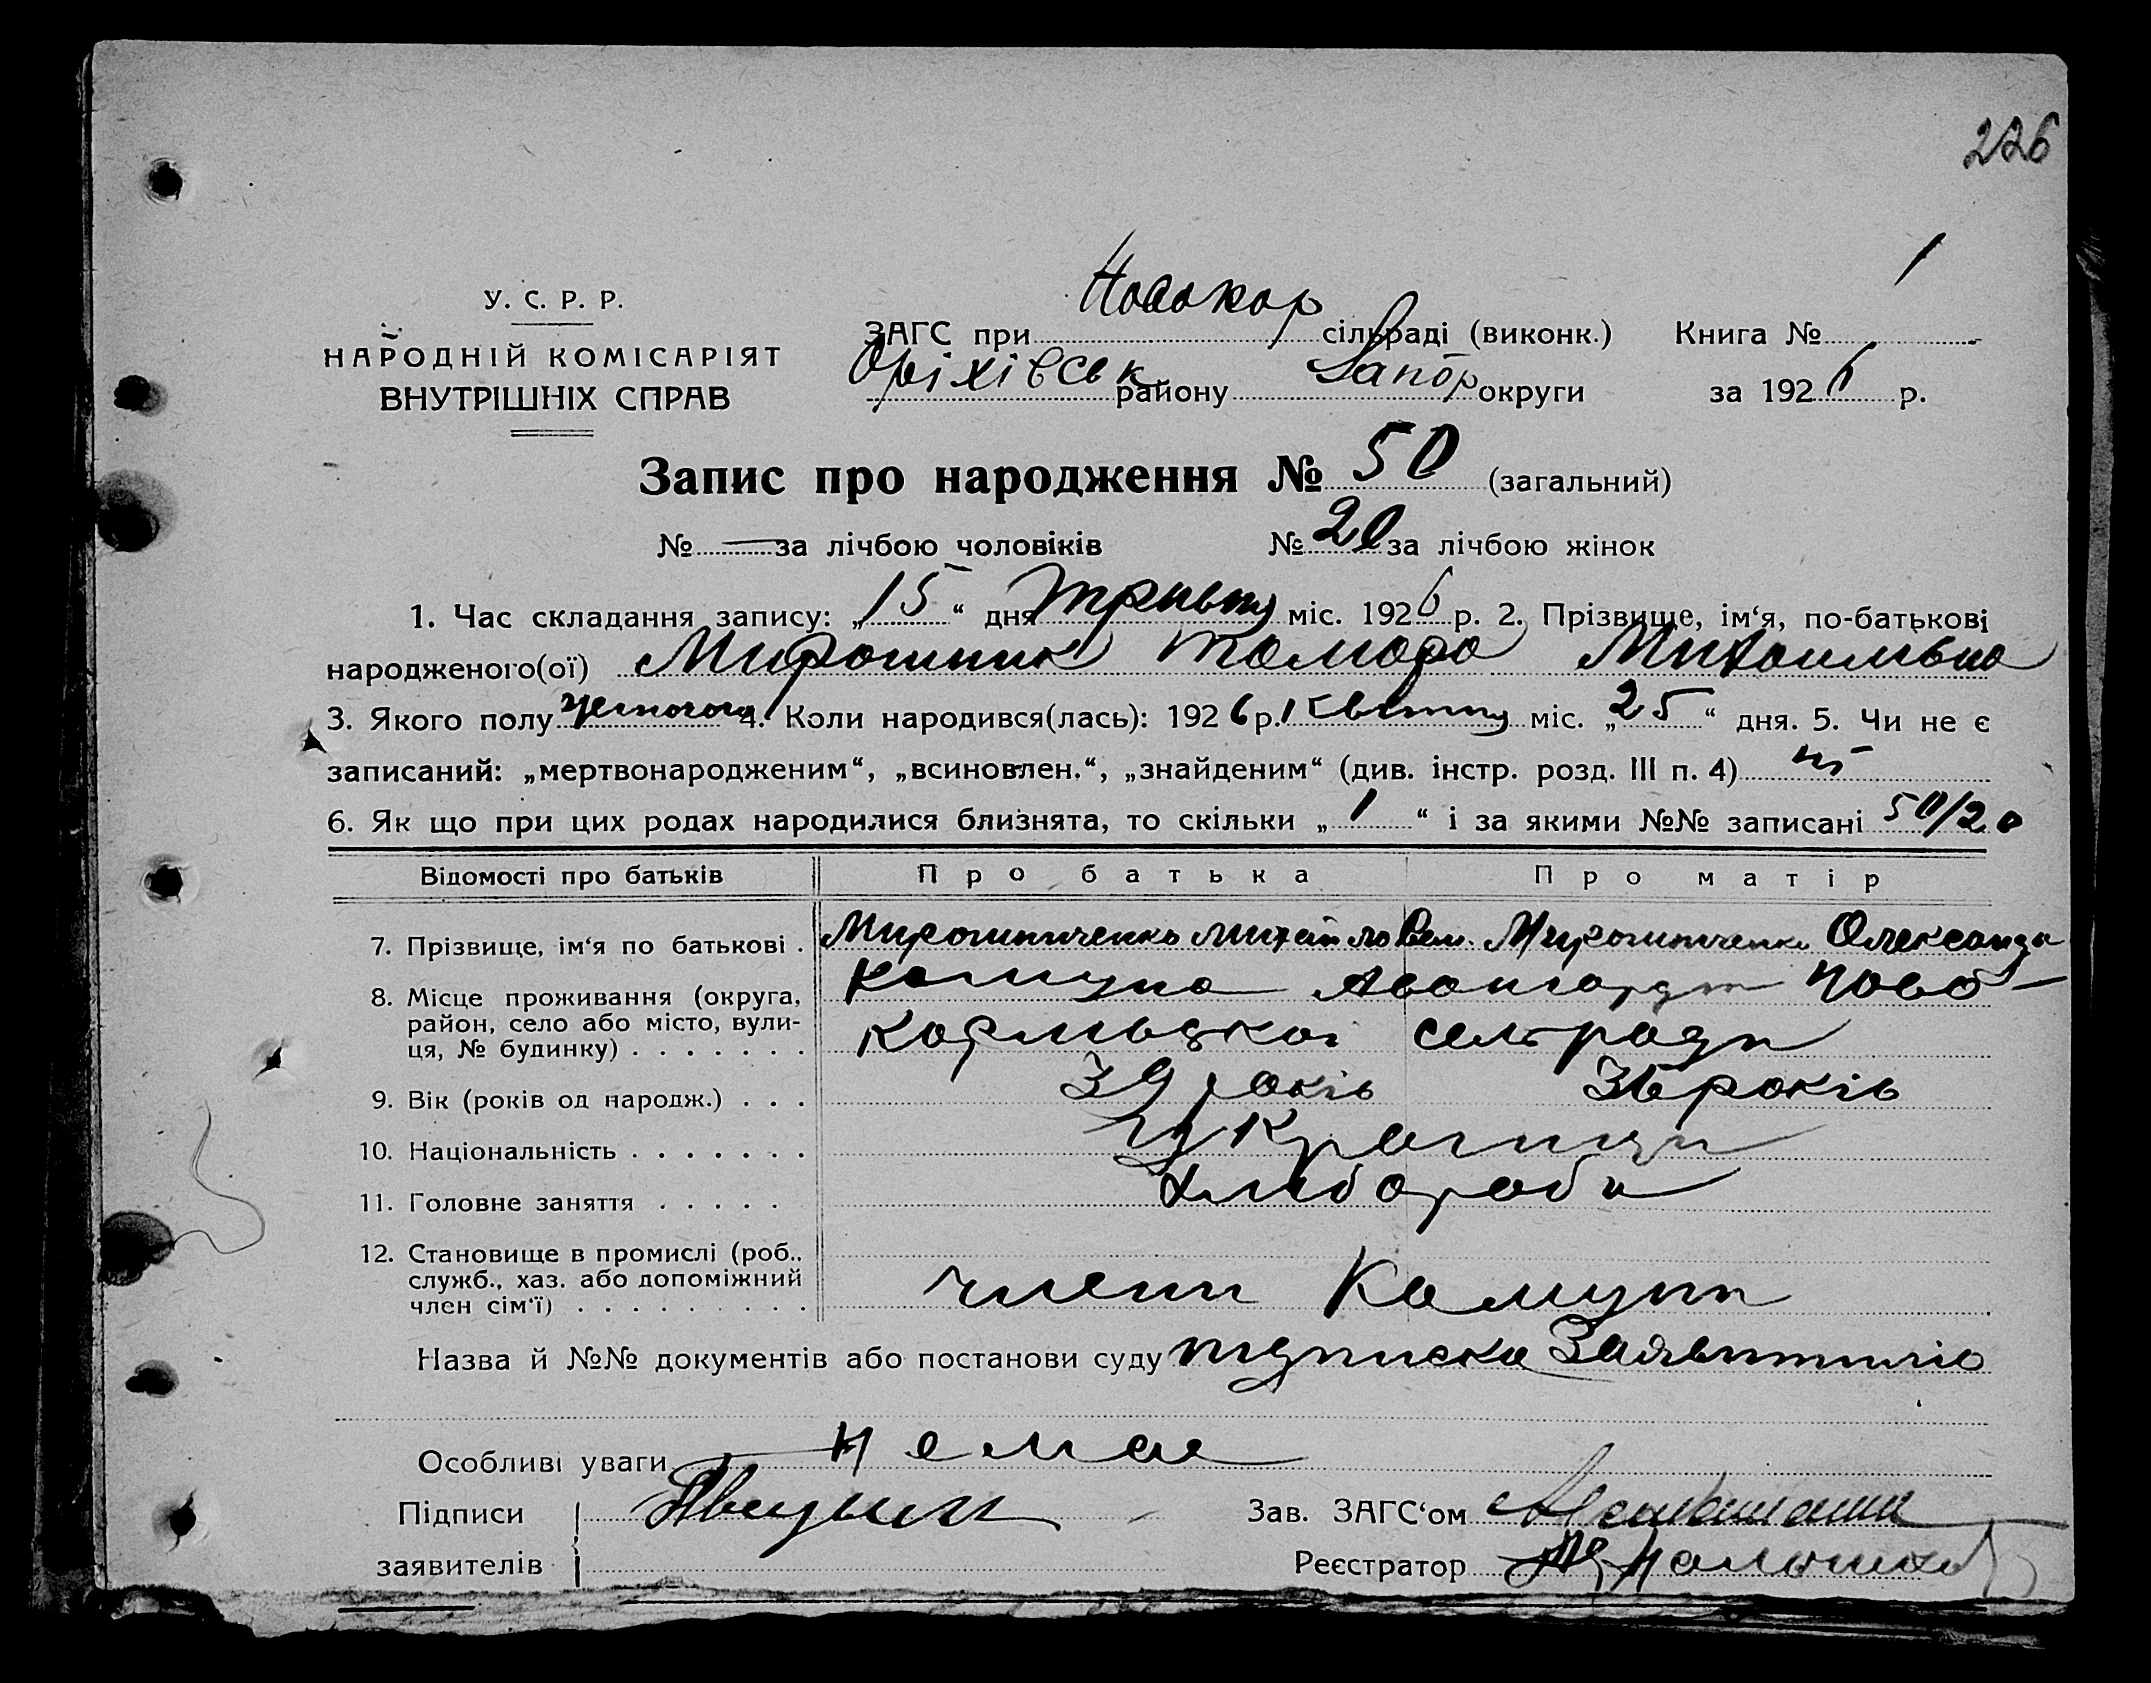 226
У. С. Р. Р.
НАРОДНІЙ КОМІСАРІЯТ
ВНУТРІШНІХ СПРАВ
ЗАГС при Новокар сільраді (виконк.) Книга № 1
Оріхівськ району Запор округи за 1926 р.
Запис про народження № 50 (загальний)
№ — за лічбою чоловіків № 20 за лічбою жінок
1. Час складання запису: „15“ дня травня міс. 1926 р. 2. Прізвище, ім‘я, по-батькові
народженого(ої) Мирошник Тамара Михаилівна
3. Якого полу жіночого 4. Коли народився(лась): 1926 р. квітня міс. „25“ дня. 5. Чи не є
записаний: „мертвонародженим“, „всиновлен.“, „знайденим“ (див. інстр. розд. III п. 4) ні
6. Як що при цих родах народилися близнята, то скільки „1“ і за якими №№ записані 50/20
Відомості про батьків Про батька Про матір
7. Прізвище, ім‘я по батькові . Мирошниченко Михайло Мирошниченко Олександра
8. Місце проживання (округа, Комуна Авангард Ново-
район, село або місто, вули- Карлівської сельради
ця, № будинку) . . . . . . .
9. Вік (років од народж.) . . . 39 років 36 років
10. Національність . . . . . . . Українці
11. Головне заняття . . . . . Хлібороби
12. Становище в промислі (роб.,
служб., хаз. або допоміжний
член сім‘ї) . . . . . . . . . члени Комуни
Назва й №№ документів або постанови суду підписка Заявителів
Особливі уваги немае
Підписи Зав. ЗАГС‘ом
заявителів Реєстратор